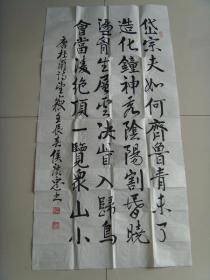 岱宗夫如何齊魯青未了
造化鐘神秀陰陽割昏曉
盪胸生層雲決眥入歸鳥
會當凌絕頂一覽衆山小
唐杜甫詩望嶽